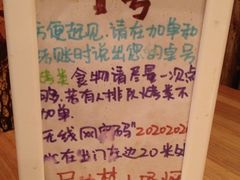 号
方便起见,请在加单和
结账时说出您的桌号
烤类食物请尽量一次点
够,若有人排队烤类不
加单.
无线网密码"20202020
在出门左边20米处